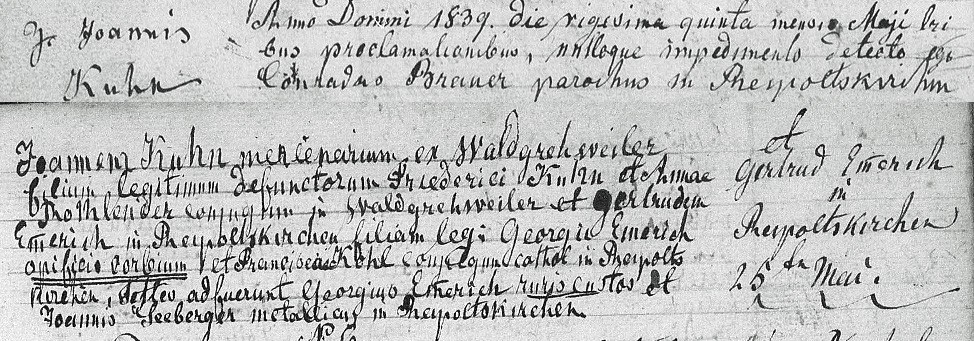 Joannis
Kuhn
Anno Domini 1839. die vigesima quinta mensis Maji tri
bus proclamationibus, nulloque impedimento detecto ego
Conradus Brauer parochus in Reipoltskirchen
Joannem Kuhn mercenarium ex Waldgrehweiler
filium legitimum defunctorum Friederici Kuhn et Annae
Rothlender conjugum in Waldgrehweiler et Gertrudem
Emerich in Reipoltskirchen filiam leg: Georgii Emerich
opificis corbium et Franciscae Kohl conjugum cathol in Reipolts
kirchen, testes adfuerunt Georgius Emerich ruris custos et
Joannis Seeberger metallicus in Reipoltskirchen
et
Gertrud Emerich
in
Reipoltskirchen
25ten Mai.